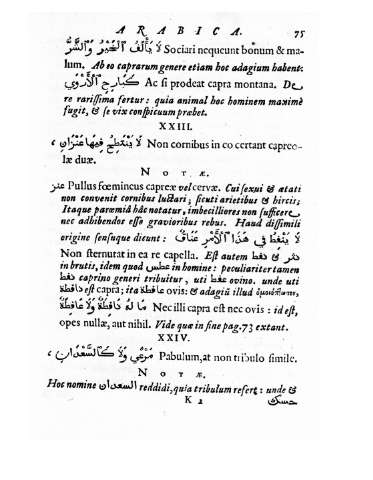 ARABICA. 75
لَا يَأْلَفُ ٱلْخَيْرُ وَٱلشَّرُّ Sociari nequeunt bonum & ma-
lum. Ab eo caprarum genere etiam hoc adagium habent:
كَبَارِحِ ٱلْأَرْوَيِ Ac si prodeat capra montana. De
re rarissima fertur: quia animal hoc hominem maximè
fugit, & se vix conspicuum præbet.
XXIII.
لَا يَنْتَطِحُ فِيهَا عَنْزَانِ، Non cornibus in eo certant capreo-
læ duæ.
NOTÆ.
عنز Pullus fœmineus capreæ vel cervæ. Cui sexui & ætati
non convenit cornibus luctari; sicuti arietibus & hircis;
Itaque parœmiâ hâc notatur, imbecilliores non sufficere,
nec adhibendos esse gravioribus rebus. Haud dissimili
origine sensuque dicunt: لَا يَنْفَطُ فِي هٰذَا ٱلْأَمْرِ عَنَاقٌ
Non sternutat in ea re capella. Est autem نفط & نثر
in brutis, idem quod عطس in homine: peculiariter tamen
نفط caprino generi tribuitur, uti عفط ovino. unde uti
نافطة est capra; ita عافطة ovis: & adagiũ illud ὁμοιόπτωτον,
مَا لَهُ نَافِطَةٌ وَلَا عَافِطَةٌ Nec illi capra est nec ovis: id est,
opes nullæ, aut nihil. Vide quæ in fine pag. 73 extant.
XXIV.
مَرْعًي وَلَا كَٱلسَّعْدَانِ، Pabulum, at non tribulo simile.
NOTÆ.
Hoc nomine السعدان reddidi, quia tribulum refert: unde &
K 2 حسك